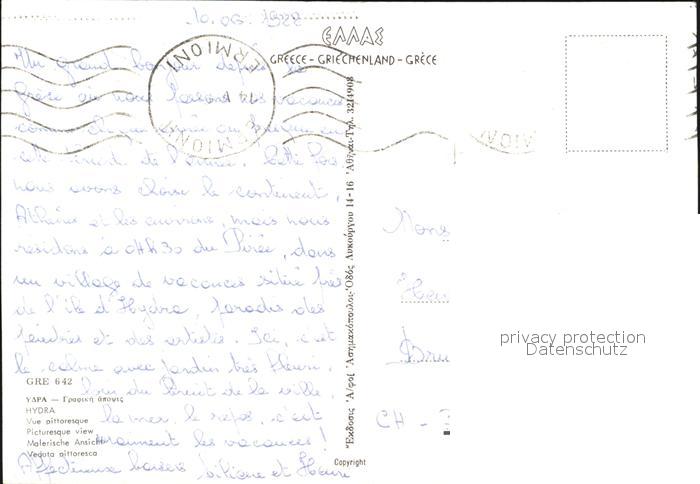 10.06.1988
ΕΛΛΑΣ
GREECE - GRIECHENLAND - GRÈCE
ERMIONI
ERMIONI
Un grand bonjour depuis la
Grèce où nous faisons des vacances
comme chaque année ou presque en
de l'année. Cette fois
nous avons choisi le continent,
Athènes et les environs, mais nous
residons à 04h30 du Pirée, dans
un village de vacances situé près
de l'île d'Hydra, paradis des
peintres et des artistes. Ici, c'est
le calme avec jardin très fleuri,
loin du bruit de la ville,
la mer, le repos, c'est
vraiment les vacances!
Affectueux baisers Liliane et Henri
GRE 642
ΥΔΡΑ — Γραφική άποψις
HYDRA
Vue pittoresque
Picturesque view
Malerische Ansicht
Veduta pittoresca
Ἔκδοσις Ἀ/φοί Ἀσημακόπουλοι· Ὁδός Λυκούργου 14-16 Ἀθῆναι· Τηλ. 3214908
Copyright
Mons
Hen
Bru
CH -
privacy protection
Datenschutz